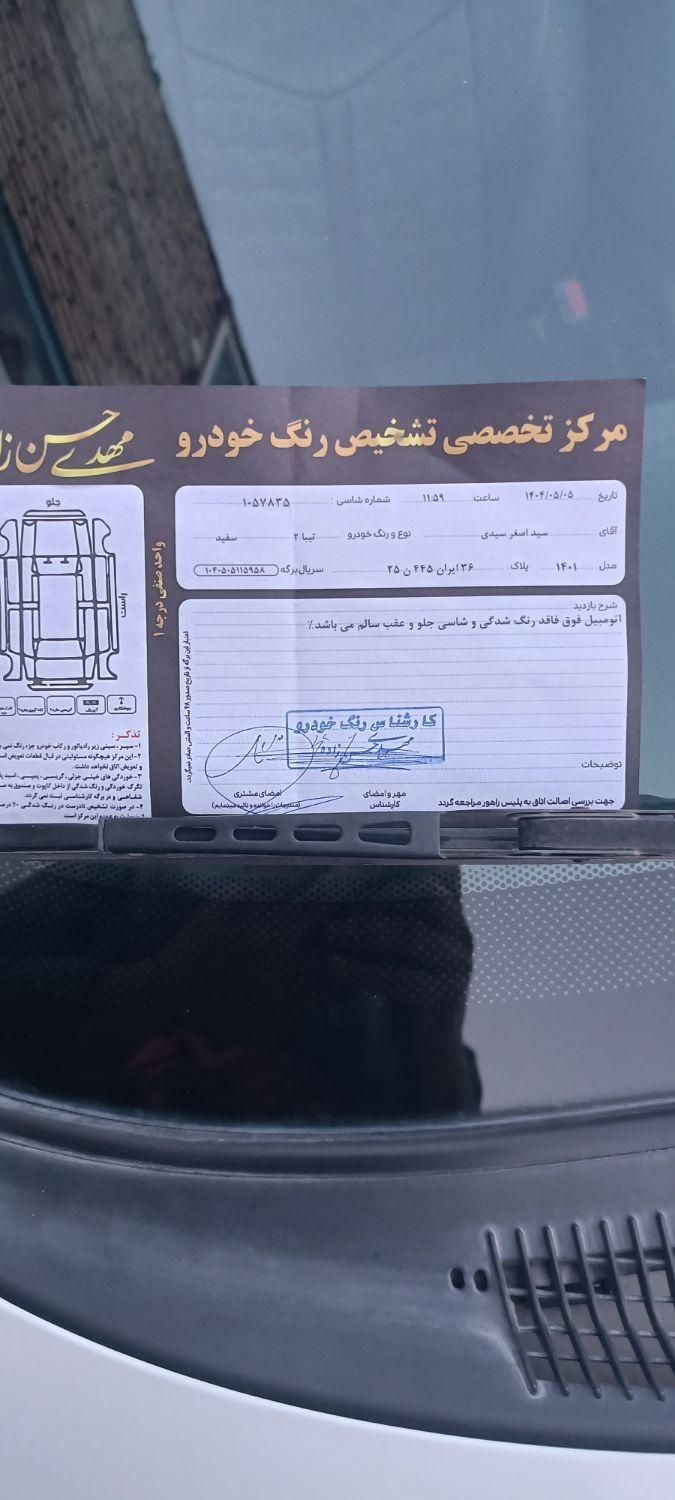 مرکز تخصصی تشخیص رنگ خودرو
مهدی حسن زا
تاریخ ۱۴۰۴/۰۵/۰۵ ساعت ۱۱:۵۹ شماره شاسی : ۱۰۵۷۸۳۵
آقای سید اصغر سیدی نوع و رنگ خودرو تیبا ۲ سفید
مدل ۱۴۰۱ پلاک ۳۶ ایران ۴۴۵ ن ۲۵ سریال برگه ۱۰۴۰۵۰۵۱۱۵۹۵۸
شرح بازدید
اتومبیل فوق فاقد رنگ شدگی و شاسی جلو و عقب سالم می باشد٪
کارشناس رنگ خودرو
توضیحات
جهت بررسی اصالت اتاق به پلیس راهور مراجعه گردد
مهر و امضای
کارشناس
امضای مشتری
(مندرجات را خوانده و تائید مینمایم)
اعتبار این برگه از تاریخ صدور ۴۸ ساعت و المثنی صادر نمیگردد.
واحد صنفی درجه ۱
جلو
راست
تذکر:
۱- سپر، سینی زیر رادیاتور و رکاب خودرو جزء رنگ نمی
۲- این مرکز هیچگونه مسئولیتی در قبال قطعات تعویض
و تعویض اتاق نخواهد داشت.
۳- خوردگی های خیلی جزئی، گریسی، پمپسی، اسید
تگرگ خوردگی و رنگ شدگی از داخل کاپوت و صندوق به
شفاهی و در برگه کارشناسی ثبت نمی گردد.
۴- در صورت تشخیص نادرست در رنگ شدگی ۲۰